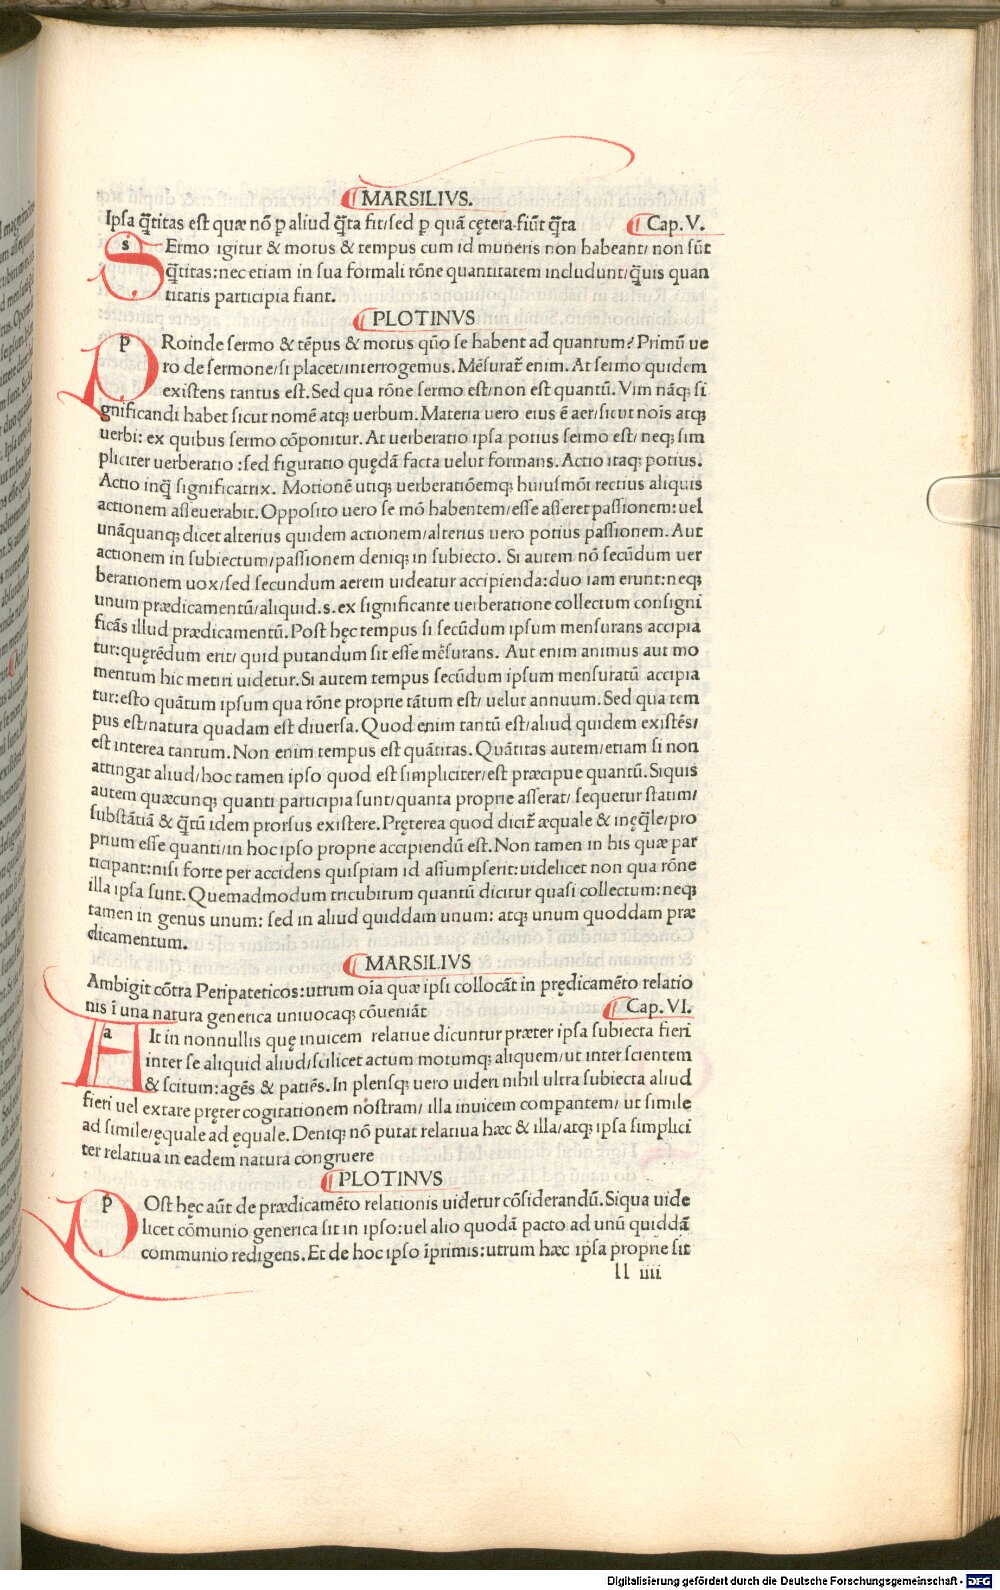 MARSILIVS.
Ipſa q̄titas eſt quæ nõ p aliud q̄ta fit/ſed p quã cętera fiũt q̄ta Cap. V.
SErmo igitur & motus & tempus cum id muneris non habeant/non ſũt
q̄titas: nec etiam in ſua formali rõne quantitatem includunt/q̄uis quan
titatis participia fiant.
PLOTINVS
PRoinde ſermo & tẽpus & motus quõ ſe habent ad quantum? Primũ ue
ro de ſermone/ſi placet/interrogemus. Mẽſurat̃ enim. At ſermo quidem
exiſtens tantus eſt. Sed qua rõne ſermo eſt/non eſt quantũ. Vim nãq; ſi
gnificandi habet ſicut nomẽ atq; uerbum. Materia uero eius ẽ aer/ſicut noĩs atq;
uerbi: ex quibus ſermo cõponitur. At uerberatio ipſa potius ſermo eſt/neq; ſim
pliciter uerberatio: ſed figuratio quędã facta uelut formans. Actio itaq; potius.
Actio inq̄ ſignificatrix. Motionẽ utiq; uerberatiõemq; huiuſmõi rectius aliquis
actionem aſſeuerabit. Oppoſito uero ſe mõ habentem/eſſe aſſeret paſſionem: uel
unãquanq; dicet alterius quidem actionem/alterius uero potius paſſionem. Aut
actionem in ſubiectum/paſſionem deniq; in ſubiecto. Si autem nõ ſecũdum uer
berationem uox/ſed ſecundum aerem uideatur accipienda: duo iam erunt: neq;
unum prædicamentũ/aliquid.s.ex ſignificante uerberatione collectum conſigni
ficãs illud prædicamentũ. Poſt hęc tempus ſi ſecũdum ipſum menſurans accipia
tur: quęrẽdum erit/quid putandum ſit eſſe mẽſurans. Aut enim animus aut mo
mentum hic metiri uidetur. Si autem tempus ſecũdum ipſum menſuratũ accipia
tur: eſto quãtum ipſum qua rõne proprie tãtum eſt/uelut annuum. Sed qua tem
pus eſt/natura quadam eſt diuerſa. Quod enim tantũ eſt/aliud quidem exiſtẽs/
eſt interea tantum. Non enim tempus eſt quãtitas. Quãtitas autem/etiam ſi non
attingat aliud/hoc tamen ipſo quod eſt ſimpliciter/eſt præcipue quantũ. Siquis
autem quæcunq; quanti participia ſunt/quanta proprie aſſerat/ſequetur ſtatim/
ſubſtãtiã & q̄tũ idem prorſus exiſtere. Pręterea quod dicit̃ æquale & inęq̄le/pro
prium eſſe quanti/in hoc ipſo proprie accipiendũ eſt. Non tamen in his quæ par
ticipant: niſi forte per accidens quiſpiam id aſſumpſerit: uidelicet non qua rõne
illa ipſa ſunt. Quemadmodum tricubitum quantũ dicitur quaſi collectum: neq;
tamen in genus unum: ſed in aliud quiddam unum: atq; unum quoddam præ
dicamentum.
MARSILIVS
Ambigit cõtra Peripateticos: utrum oĩa quæ ipſi collocãt in prędicamẽto relatio
nis ĩ una natura generica uniuocaq; cõueniãt Cap. VI.
AIt in nonnullis quę inuicem relatiue dicuntur præter ipſa ſubiecta fieri
inter ſe aliquid aliud/ſcilicet actum motumq; aliquem/ut inter ſcientem
& ſcitum: agẽs & patiẽs. In pleriſq; uero uideri nihil ultra ſubiecta aliud
fieri uel extare pręter cogitationem noſtram/illa inuicem compantem/ut ſimile
ad ſimile/ęquale ad ęquale. Deniq; nõ putat relatiua hæc & illa/atq; ipſa ſimplici
ter relatiua in eadem natura congruere
PLOTINVS
POſt hęc aũt de prædicamẽto relationis uidetur cõſiderandũ. Siqua uide
licet cõmunio generica ſit in ipſo: uel alio quodã pacto ad unũ quiddã
communio redigens. Et de hoc ipſo ĩprimis: utrum hæc ipſa proprie ſit
ll iiii
Digitalisierung gefördert durch die Deutsche Forschungsgemeinschaft - DFG